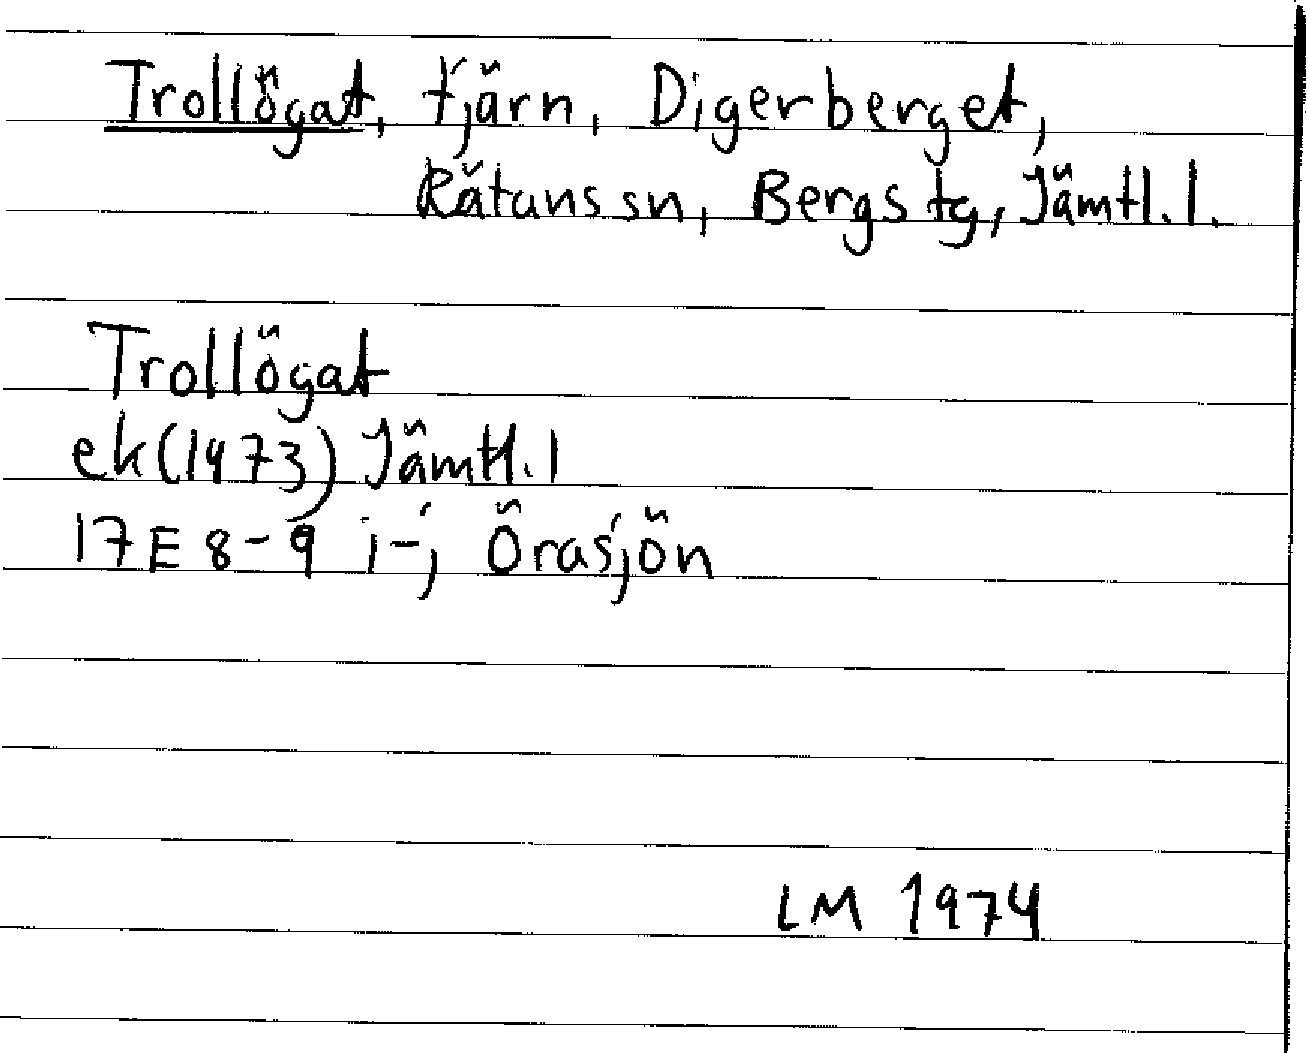 Trollögat, tjärn, Digerberget,
Rätans sn, Bergs tg, Jämtl. l.
Trollögat
ek (1973) Jämtl. l
17E 8-9 i-j Örasjön
LM 1974